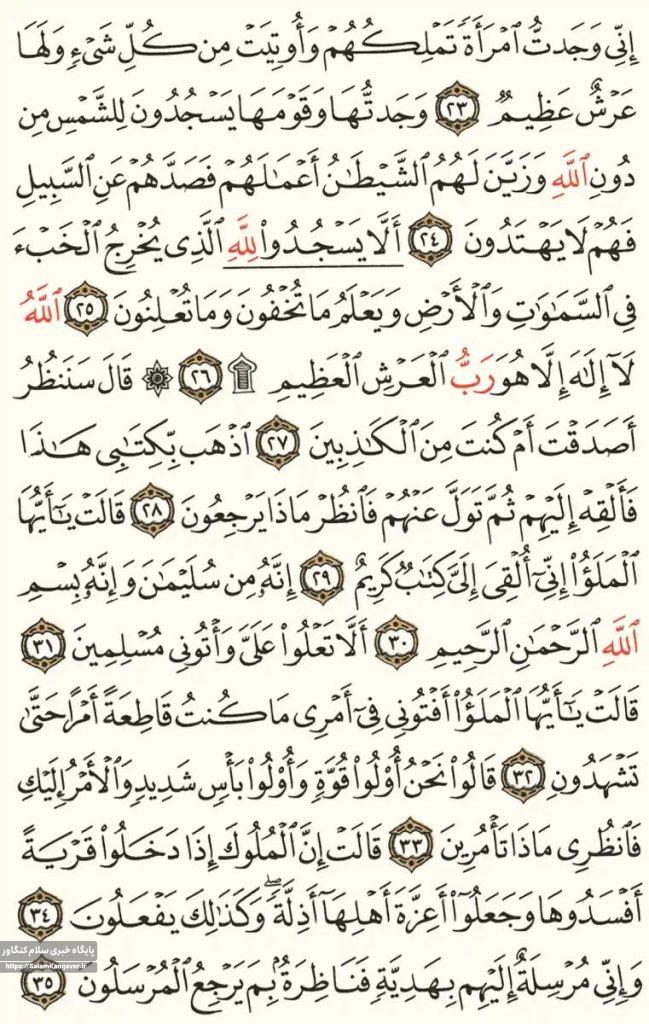 إِنِّي وَجَدتُّ ٱمْرَأَةً تَمْلِكُهُمْ وَأُوتِيَتْ مِن كُلِّ شَيْءٍ وَلَهَا
عَرْشٌ عَظِيمٌ ٢٣ وَجَدتُّهَا وَقَوْمَهَا يَسْجُدُونَ لِلشَّمْسِ مِن
دُونِ ٱللَّهِ وَزَيَّنَ لَهُمُ ٱلشَّيْطَٰنُ أَعْمَٰلَهُمْ فَصَدَّهُمْ عَنِ ٱلسَّبِيلِ
فَهُمْ لَا يَهْتَدُونَ ٢٤ أَلَّا يَسْجُدُوا۟ لِلَّهِ ٱلَّذِي يُخْرِجُ ٱلْخَبْءَ
فِي ٱلسَّمَٰوَٰتِ وَٱلْأَرْضِ وَيَعْلَمُ مَا تُخْفُونَ وَمَا تُعْلِنُونَ ٢٥ ٱللَّهُ
لَآ إِلَٰهَ إِلَّا هُوَ رَبُّ ٱلْعَرْشِ ٱلْعَظِيمِ ۩ ٢٦ ۞ قَالَ سَنَنظُرُ
أَصَدَقْتَ أَمْ كُنتَ مِنَ ٱلْكَٰذِبِينَ ٢٧ ٱذْهَب بِّكِتَٰبِي هَٰذَا
فَأَلْقِهْ إِلَيْهِمْ ثُمَّ تَوَلَّ عَنْهُمْ فَٱنظُرْ مَاذَا يَرْجِعُونَ ٢٨ قَالَتْ يَٰٓأَيُّهَا
ٱلْمَلَؤُا۟ إِنِّيٓ أُلْقِيَ إِلَيَّ كِتَٰبٌ كَرِيمٌ ٢٩ إِنَّهُۥ مِن سُلَيْمَٰنَ وَإِنَّهُۥ بِسْمِ
ٱللَّهِ ٱلرَّحْمَٰنِ ٱلرَّحِيمِ ٣٠ أَلَّا تَعْلُوا۟ عَلَيَّ وَأْتُونِي مُسْلِمِينَ ٣١
قَالَتْ يَٰٓأَيُّهَا ٱلْمَلَؤُا۟ أَفْتُونِي فِيٓ أَمْرِي مَا كُنتُ قَاطِعَةً أَمْرًا حَتَّىٰ
تَشْهَدُونِ ٣٢ قَالُوا۟ نَحْنُ أُو۟لُوا۟ قُوَّةٍ وَأُو۟لُوا۟ بَأْسٍ شَدِيدٍ وَٱلْأَمْرُ إِلَيْكِ
فَٱنظُرِي مَاذَا تَأْمُرِينَ ٣٣ قَالَتْ إِنَّ ٱلْمُلُوكَ إِذَا دَخَلُوا۟ قَرْيَةً
أَفْسَدُوهَا وَجَعَلُوٓا۟ أَعِزَّةَ أَهْلِهَآ أَذِلَّةً ۖ وَكَذَٰلِكَ يَفْعَلُونَ ٣٤
وَإِنِّي مُرْسِلَةٌ إِلَيْهِم بِهَدِيَّةٍ فَنَاظِرَةٌۢ بِمَ يَرْجِعُ ٱلْمُرْسَلُونَ ٣٥
پایگاه خبری سلام کنگاور
https://SalamKangavar.ir